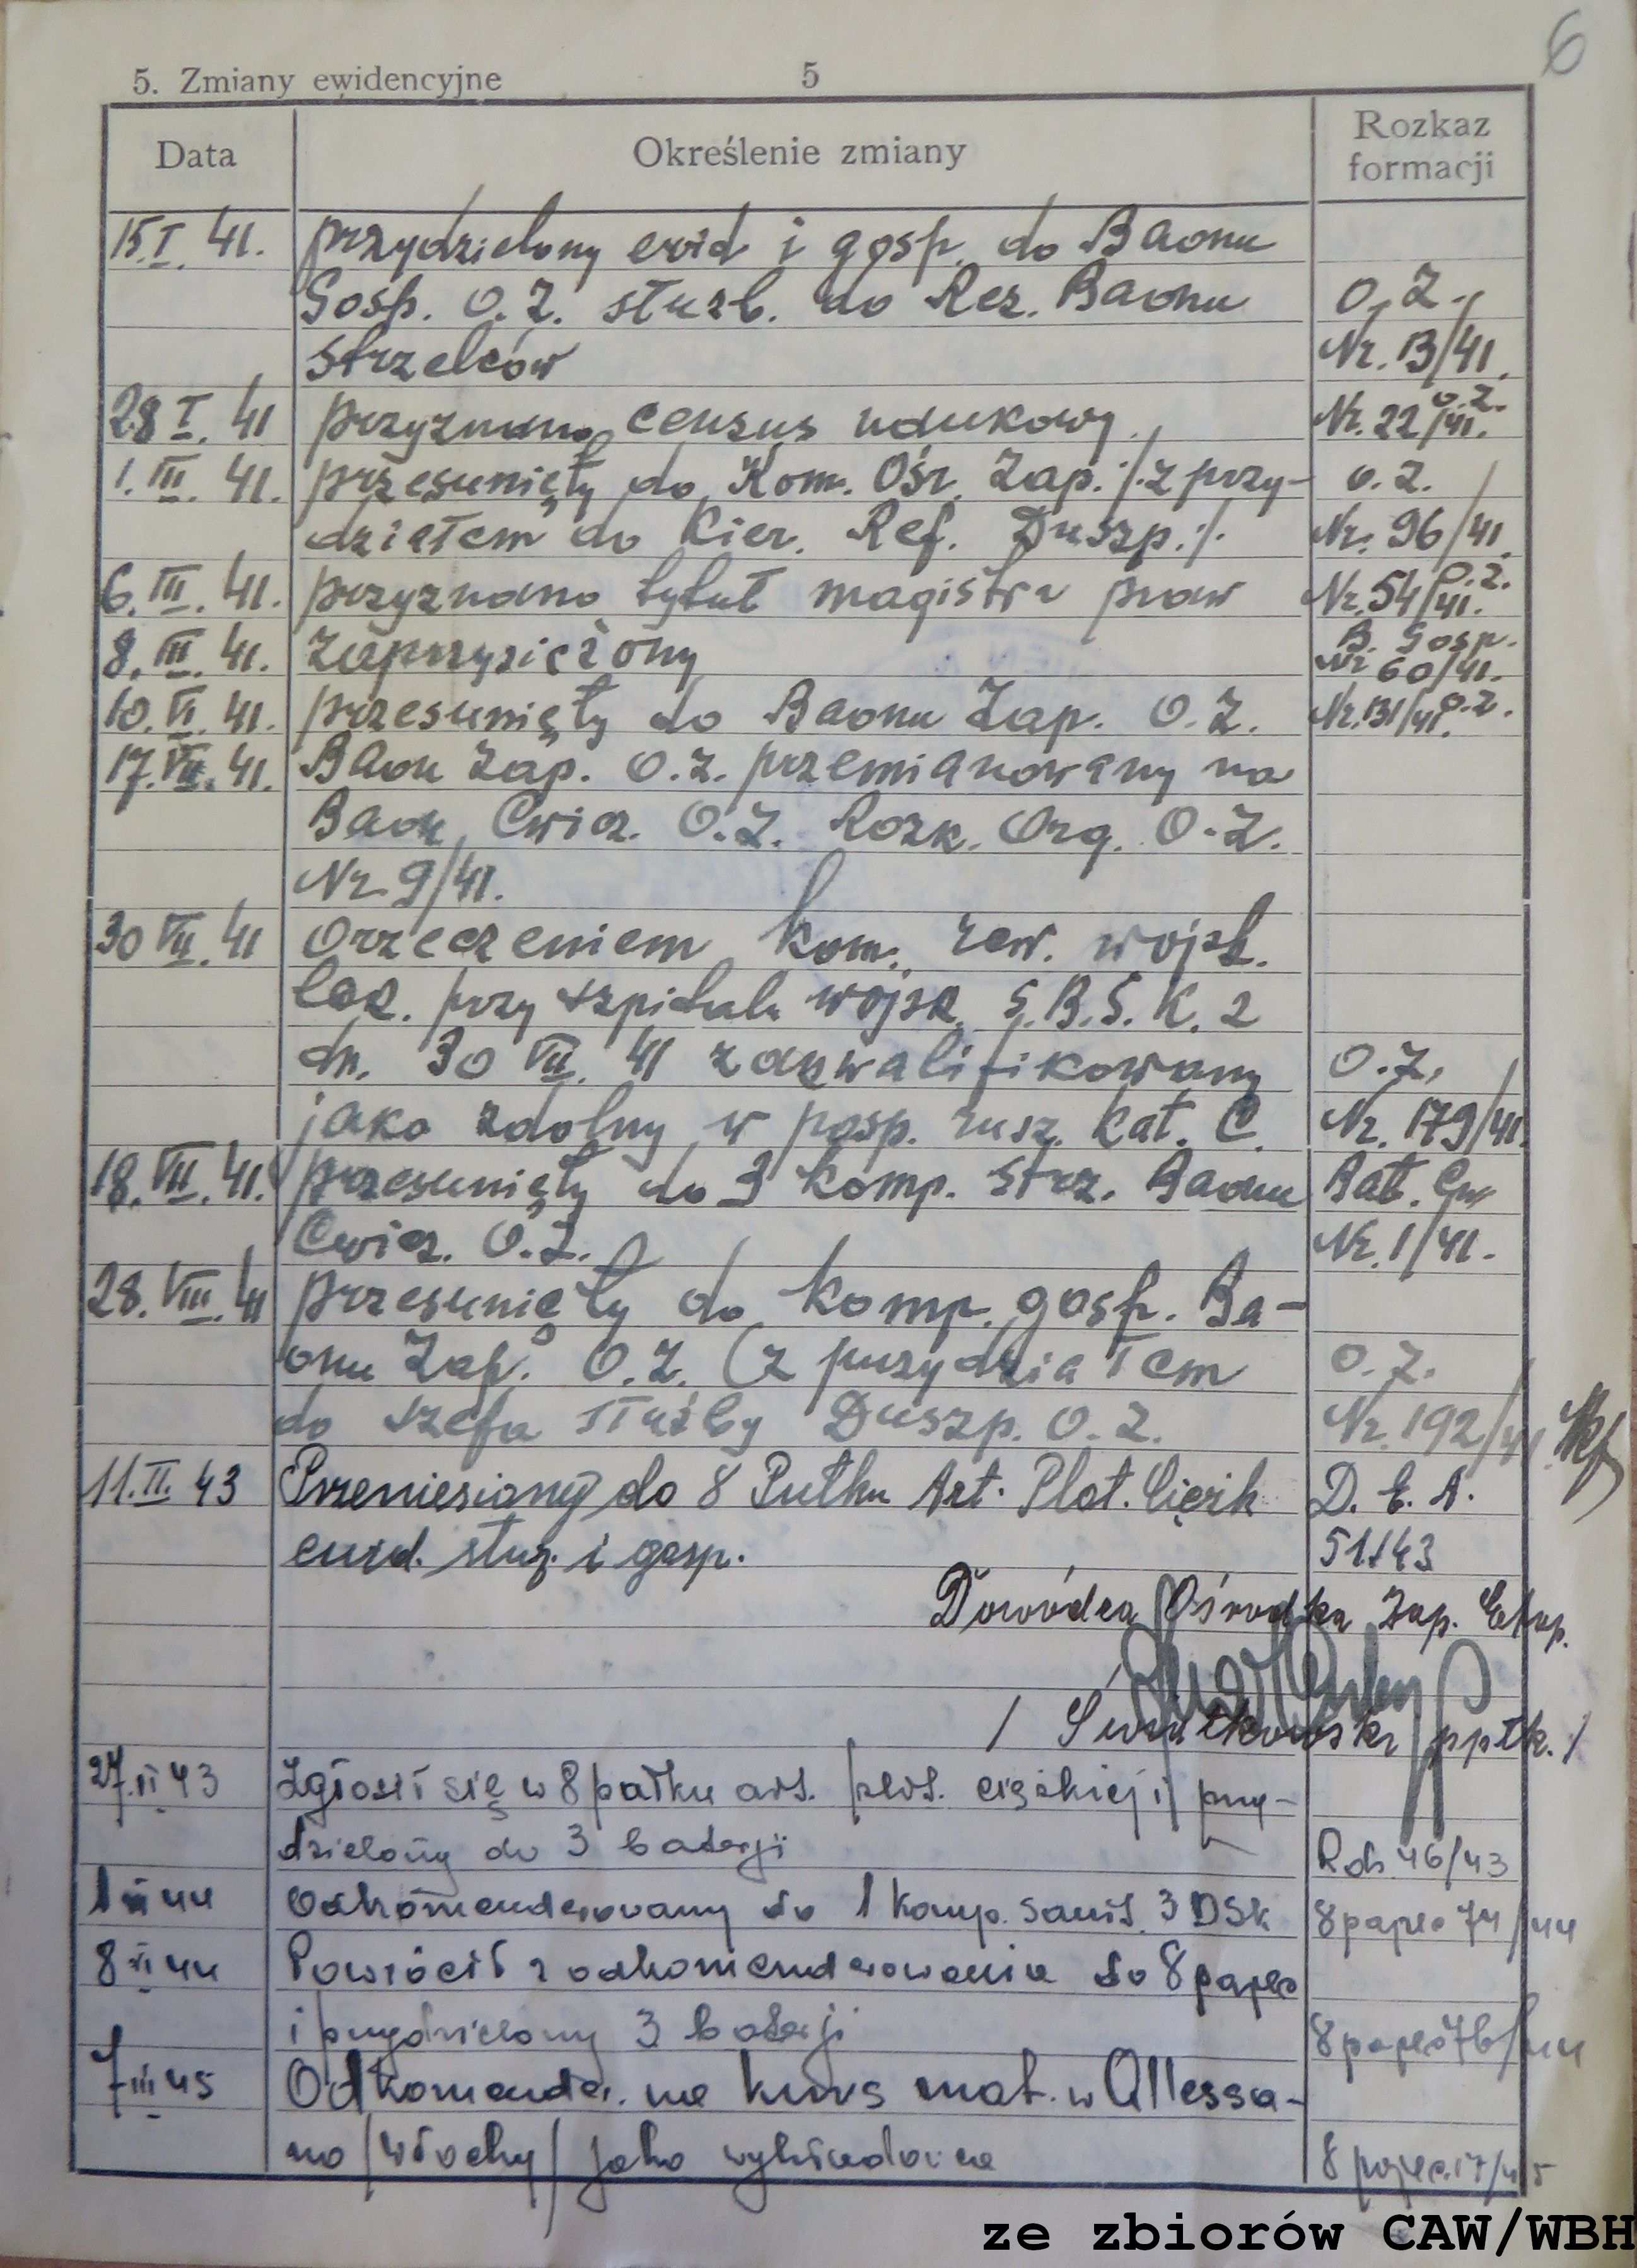 6
5. Zmiany ewidencyjne 5
Data Określenie zmiany Rozkaz formacji
15.I. 41. przydzielony ewid i gosp. do Baonu
Gosp. O.Z. służb. do Rez. Baonu O.Z.
Strzelców Nr. 13/41.
28 I. 41 przyznano census naukowy. Nr. 22/41. O.Z.
1. III. 41. przesunięty do Kom. Ośr. Zap. /.z przy- O.Z.
działem do Kier. Ref. Duszp./. Nr. 96/41.
6. III. 41. przyznano tytuł magistra praw Nr. 54/41. O.Z.
8. III. 41. Zaprzysiężony B. Gosp. Nr 60/41.
10. VI. 41. przesunięty do Baonu Zap. O.Z. Nr. 131/41. O.Z.
17. VII. 41. Baon Zap. O.Z. przemianowany na
Baon Cwicz. O.Z. Rozk. Org. O.Z.
Nr 9/41.
30 VII. 41 Orzeczeniem Kom. rew. wojsk.
lek. przy szpitalu wojsk. S.B.S.K. 2
dn. 30 VII. 41 zakwalifikowany O.Z.
jako zdolny w posp. rusz. Kat. C. Nr. 179/41.
18. VII. 41. przesunięty do 3 Komp. Strz. Baonu Bat. Cw
Cwicz. O.Z. Nr. 1/41.
28. VIII. 41 przesunięty do Komp. gosp. Ba-
onu Zap. O.Z. (z przydziałem O.Z.
do szefa służby Duszp. O.Z. Nr. 192/41
11. II. 43 Przeniesiony do 8 Pułku Art. Plot. Ciężk D. E. A.
ewid. służ. i gosp. 51/43
Dowódca Ośrodka Zap. Eksp.
/ Świątkowski ppłk. /
27. II 43 Zgłosił się w 8 pułku art. plot. ciężkiej i przy-
dzielony do 3 baterji Rob. 46/43
Odkomenderowany do 1 komp. sanit. 3 DSK 8 paplc 74/44
8 VI 44 Powrócił z odkomenderowania do 8 paplc
i przydzielony 3 baterji 8 paplc 76/44
7 III 45 Odkomender. na kurs mat. w Allessa-
no /Włochy/ jako wykładowca 8 paplc. 17/45
ze zbiorów CAW/WBH